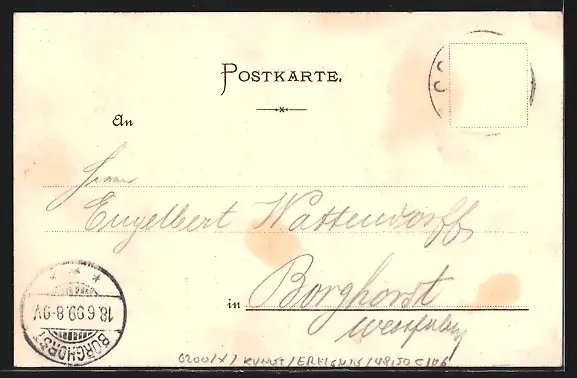 POSTKARTE.
An
Herrn
Engelbert Wattendorff
in Borghorst
Westfalen
BORGHORST
18.6.99.8-9V
6200/X/KUNST/EREIGNIS/48,50 C106